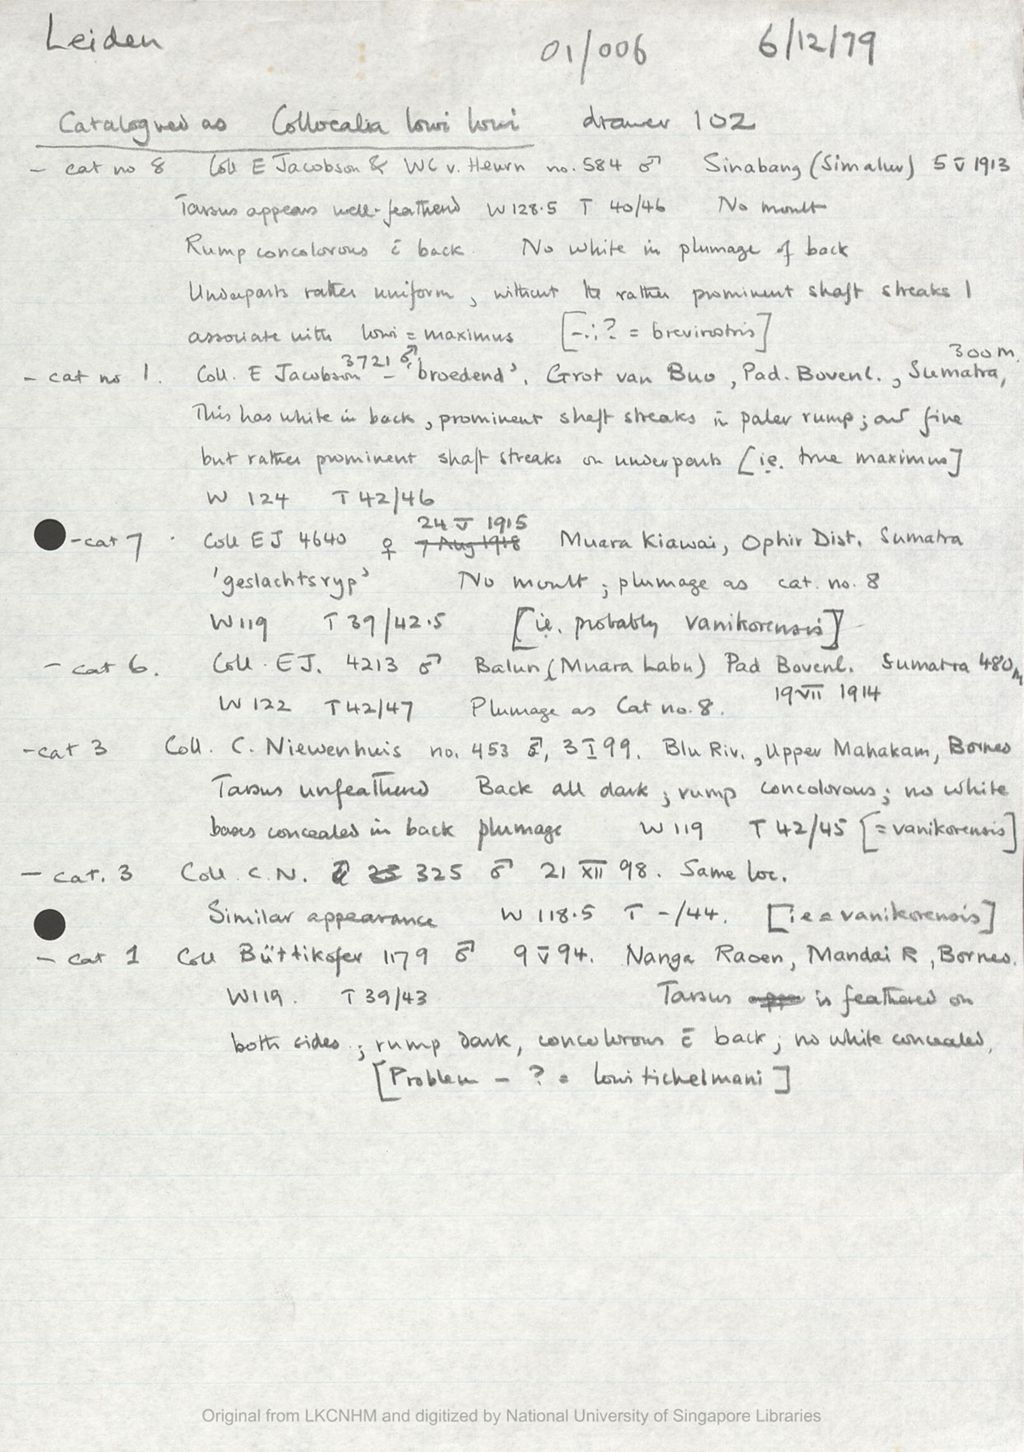 Leiden 01/006 6/12/79
Catalogued as Collocalia lowi lowi drawer 102
- cat no 8 Coll E Jacobson & WC v. Heurn no. 584 ♂ Sinabang (Simalur) 5 V 1913
Tarsus appears well-feathered W 128.5 T 40/46 No moult
Rump concolorous c̄ back. No white in plumage of back
Underparts rather uniform, without the rather prominent shaft streaks I
associate with lowi = maximus [-:? = brevirostris]
300m
- cat no 1. Coll. E Jacobson 3721 ♂ - 'broedend'. Grot van Buo, Pad. Bovenl., Sumatra,
This has white in back, prominent shaft streaks in paler rump; and fine
but rather prominent shaft streaks on underparts [ie. true maximus]
W 124 T 42/46
24 V 1915
- cat 7 Coll EJ 4640 ♀ 7 Aug 1918 Muara Kiawai, Ophir Dist. Sumatra
'geslachtsryp' No moult; plumage as cat. no. 8
W 119 T 39/42.5 [ie. probably vanikorensis]
- cat 6. Coll. EJ. 4213 ♂ Balun (Muara Labu) Pad Bovenl. Sumatra 480M
19 VII 1914
W 122 T 42/47 Plumage as Cat no. 8.
- cat 3 Coll. C. Niewenhuis no. 453 ♂, 3 I 99. Blu Riv., Upper Mahakam, Borneo
Tarsus unfeathered Back all dark; rump concolorous; no white
bases concealed in back plumage W 119 T 42/45 [= vanikorensis]
- cat. 3 Coll. C.N. 325 ♂ 21 XII 98. Same loc.
Similar appearance W 118.5 T -/44. [ie = vanikorensis]
- cat 1 Coll Büttikofer 1179 ♂ 9 V 94. Nanga Raoen, Mandai R, Borneo.
W119. T 39/43 Tarsus is feathered on
both sides; rump dark, concolorous c̄ back; no white concealed,
[Problem - ? = lowi tichelmani]
Original from LKCNHM and digitized by National University of Singapore Libraries